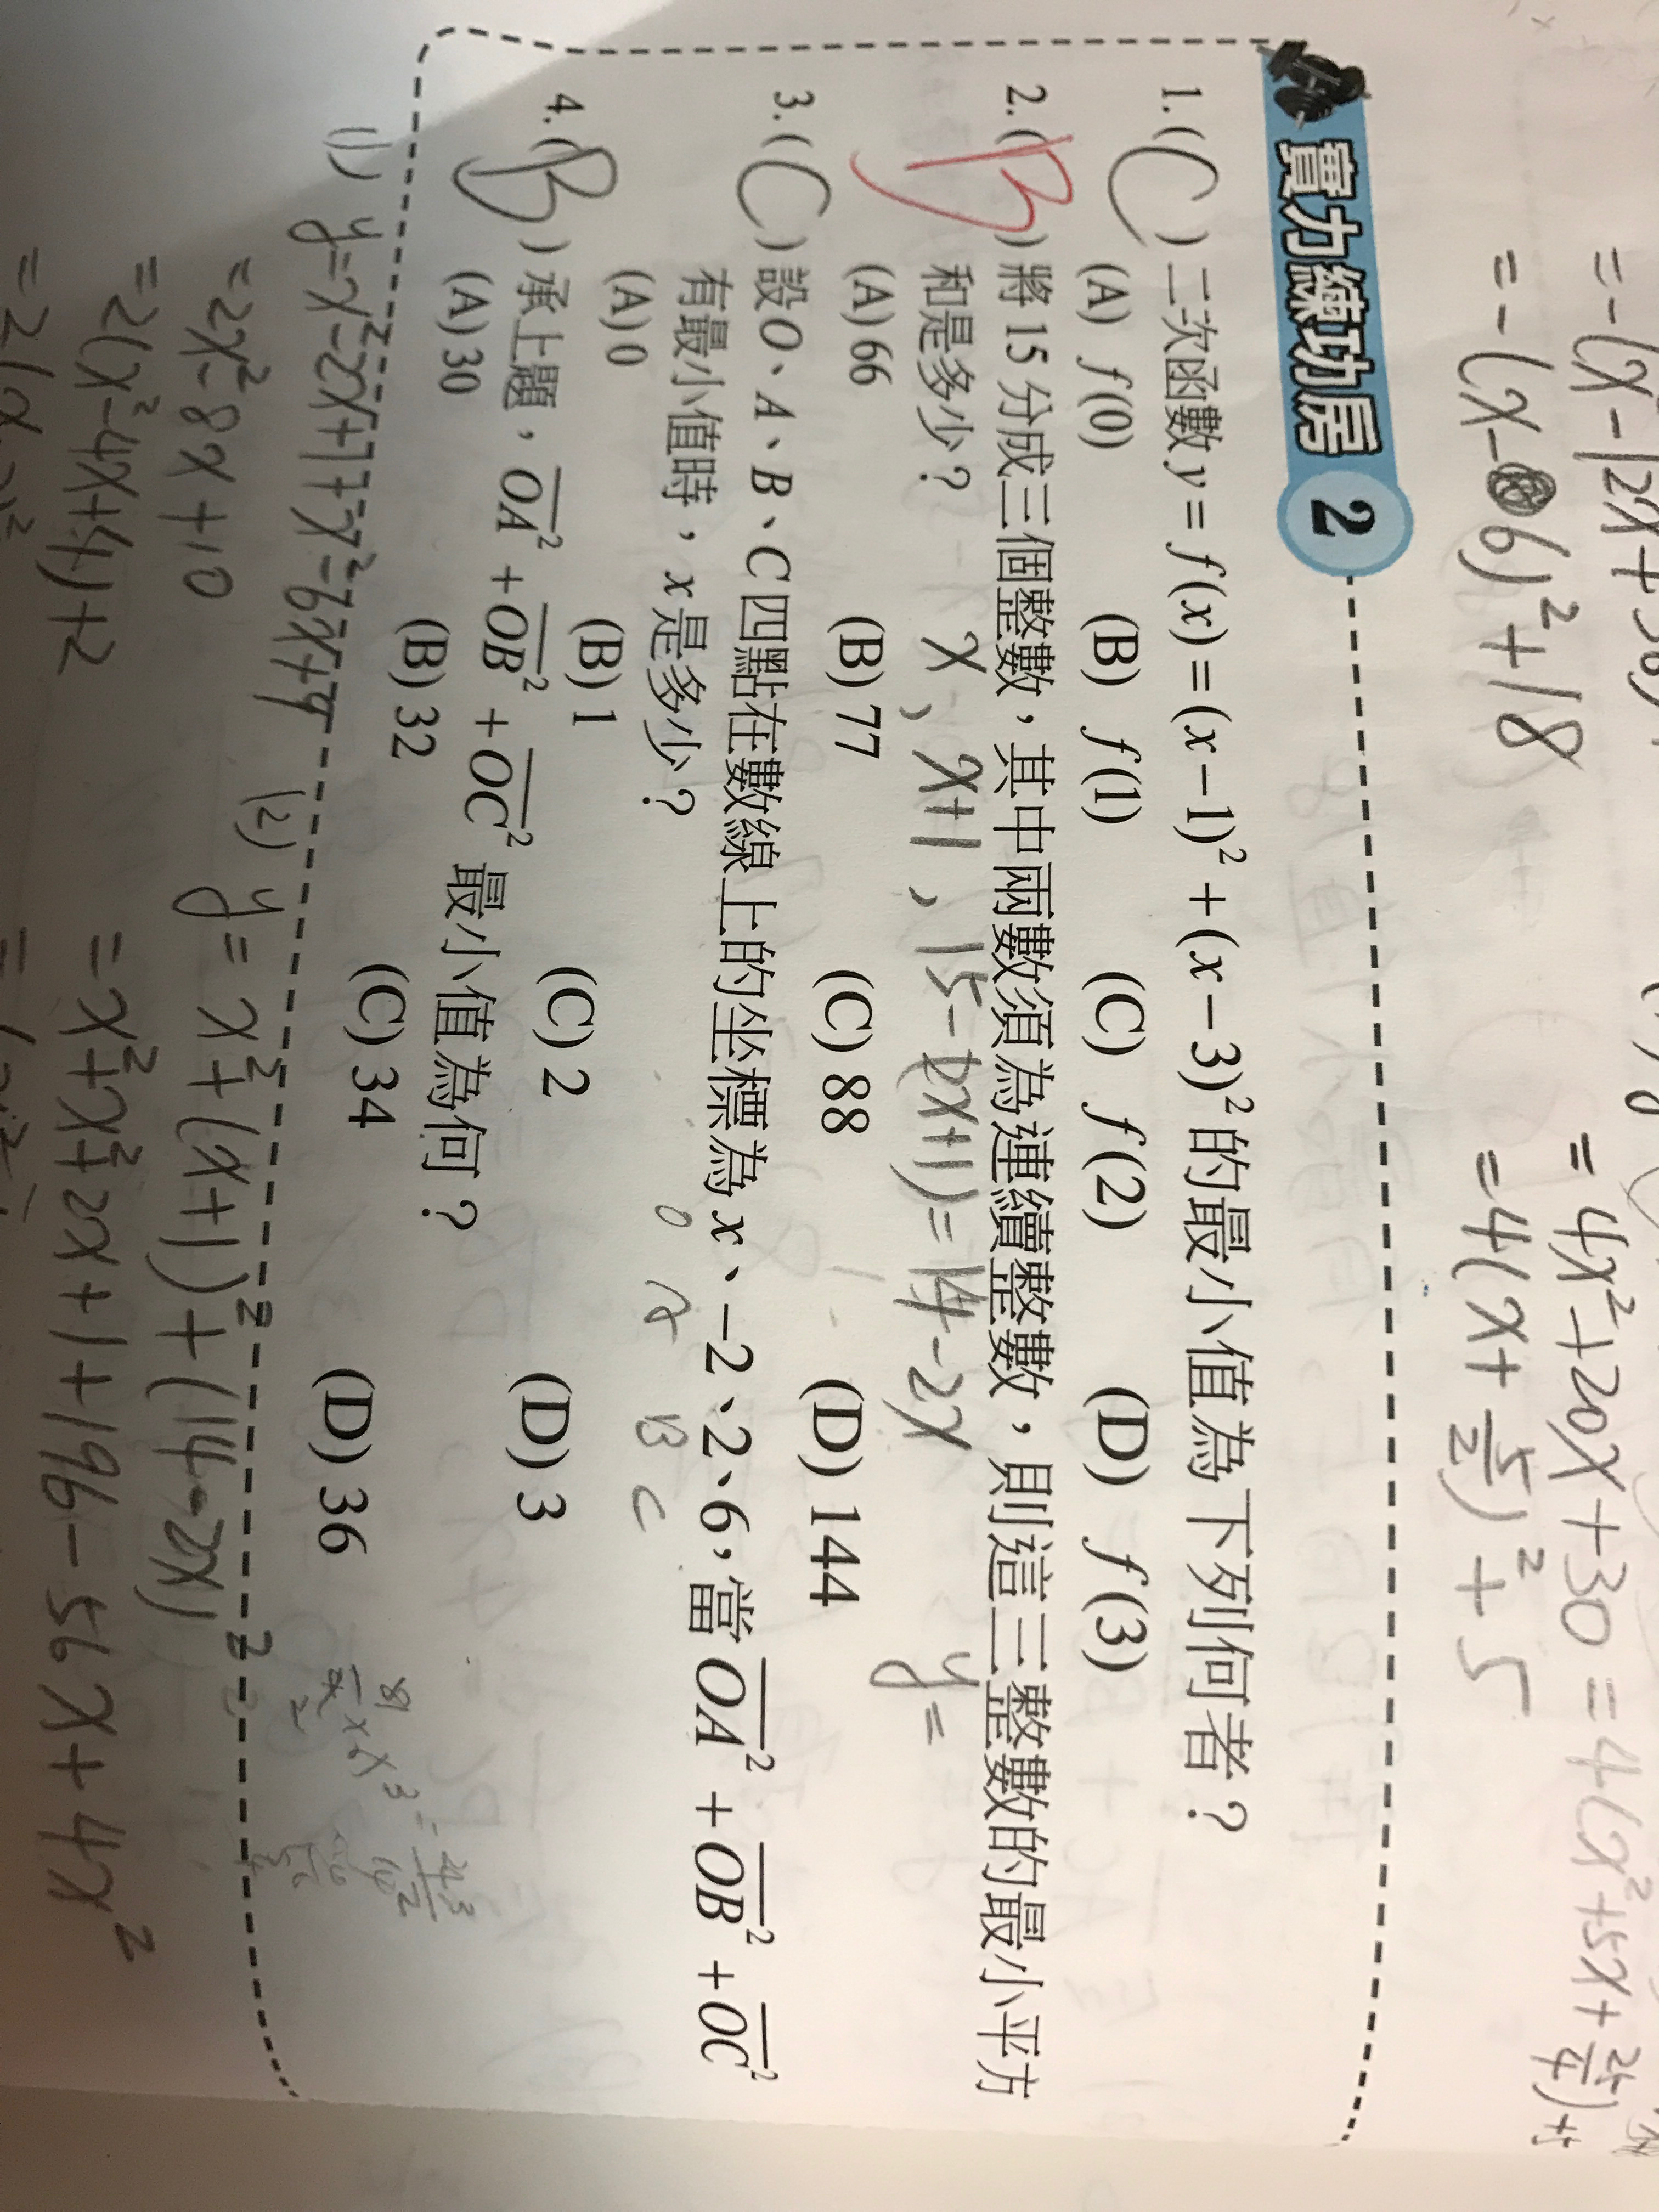 = -(x²-12x+36)
= -(x-6)²+18
= 4x²+20x+30 = 4(x²+5x+25/4)+5
= 4(x+5/2)²+5
實力練功房 2
1.(C)二次函數 y = f(x) = (x-1)² + (x-3)² 的最小值為下列何者？
(A) f(0) (B) f(1) (C) f(2) (D) f(3)
2.(B)將 15 分成三個整數，其中兩數須為連續整數，則這三整數的最小平方
和是多少？ x、x+1、15-(2x+1)=14-2x y=
(A) 66 (B) 77 (C) 88 (D) 144
3.(C)設 O、A、B、C 四點在數線上的坐標為 x、-2、2、6，當 OA² + OB² + OC²
有最小值時，x 是多少？ O A B C
(A) 0 (B) 1 (C) 2 (D) 3
4.(B)承上題，OA² + OB² + OC² 最小值為何？
(A) 30 (B) 32 (C) 34 (D) 36
(1) y=x²-2x+1+x²-6x+9
=2x²-8x+10
=2(x²-4x+4)+2
(2) y= x²+(x+1)²+(14-2x)²
= x²+x²+2x+1+196-56x+4x²